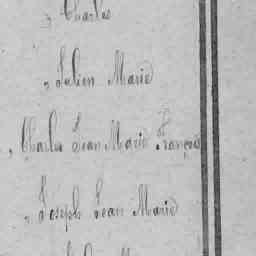 , Charles
, Julien Marie
, Charles Jean Marie François
, Joseph Jean Marie